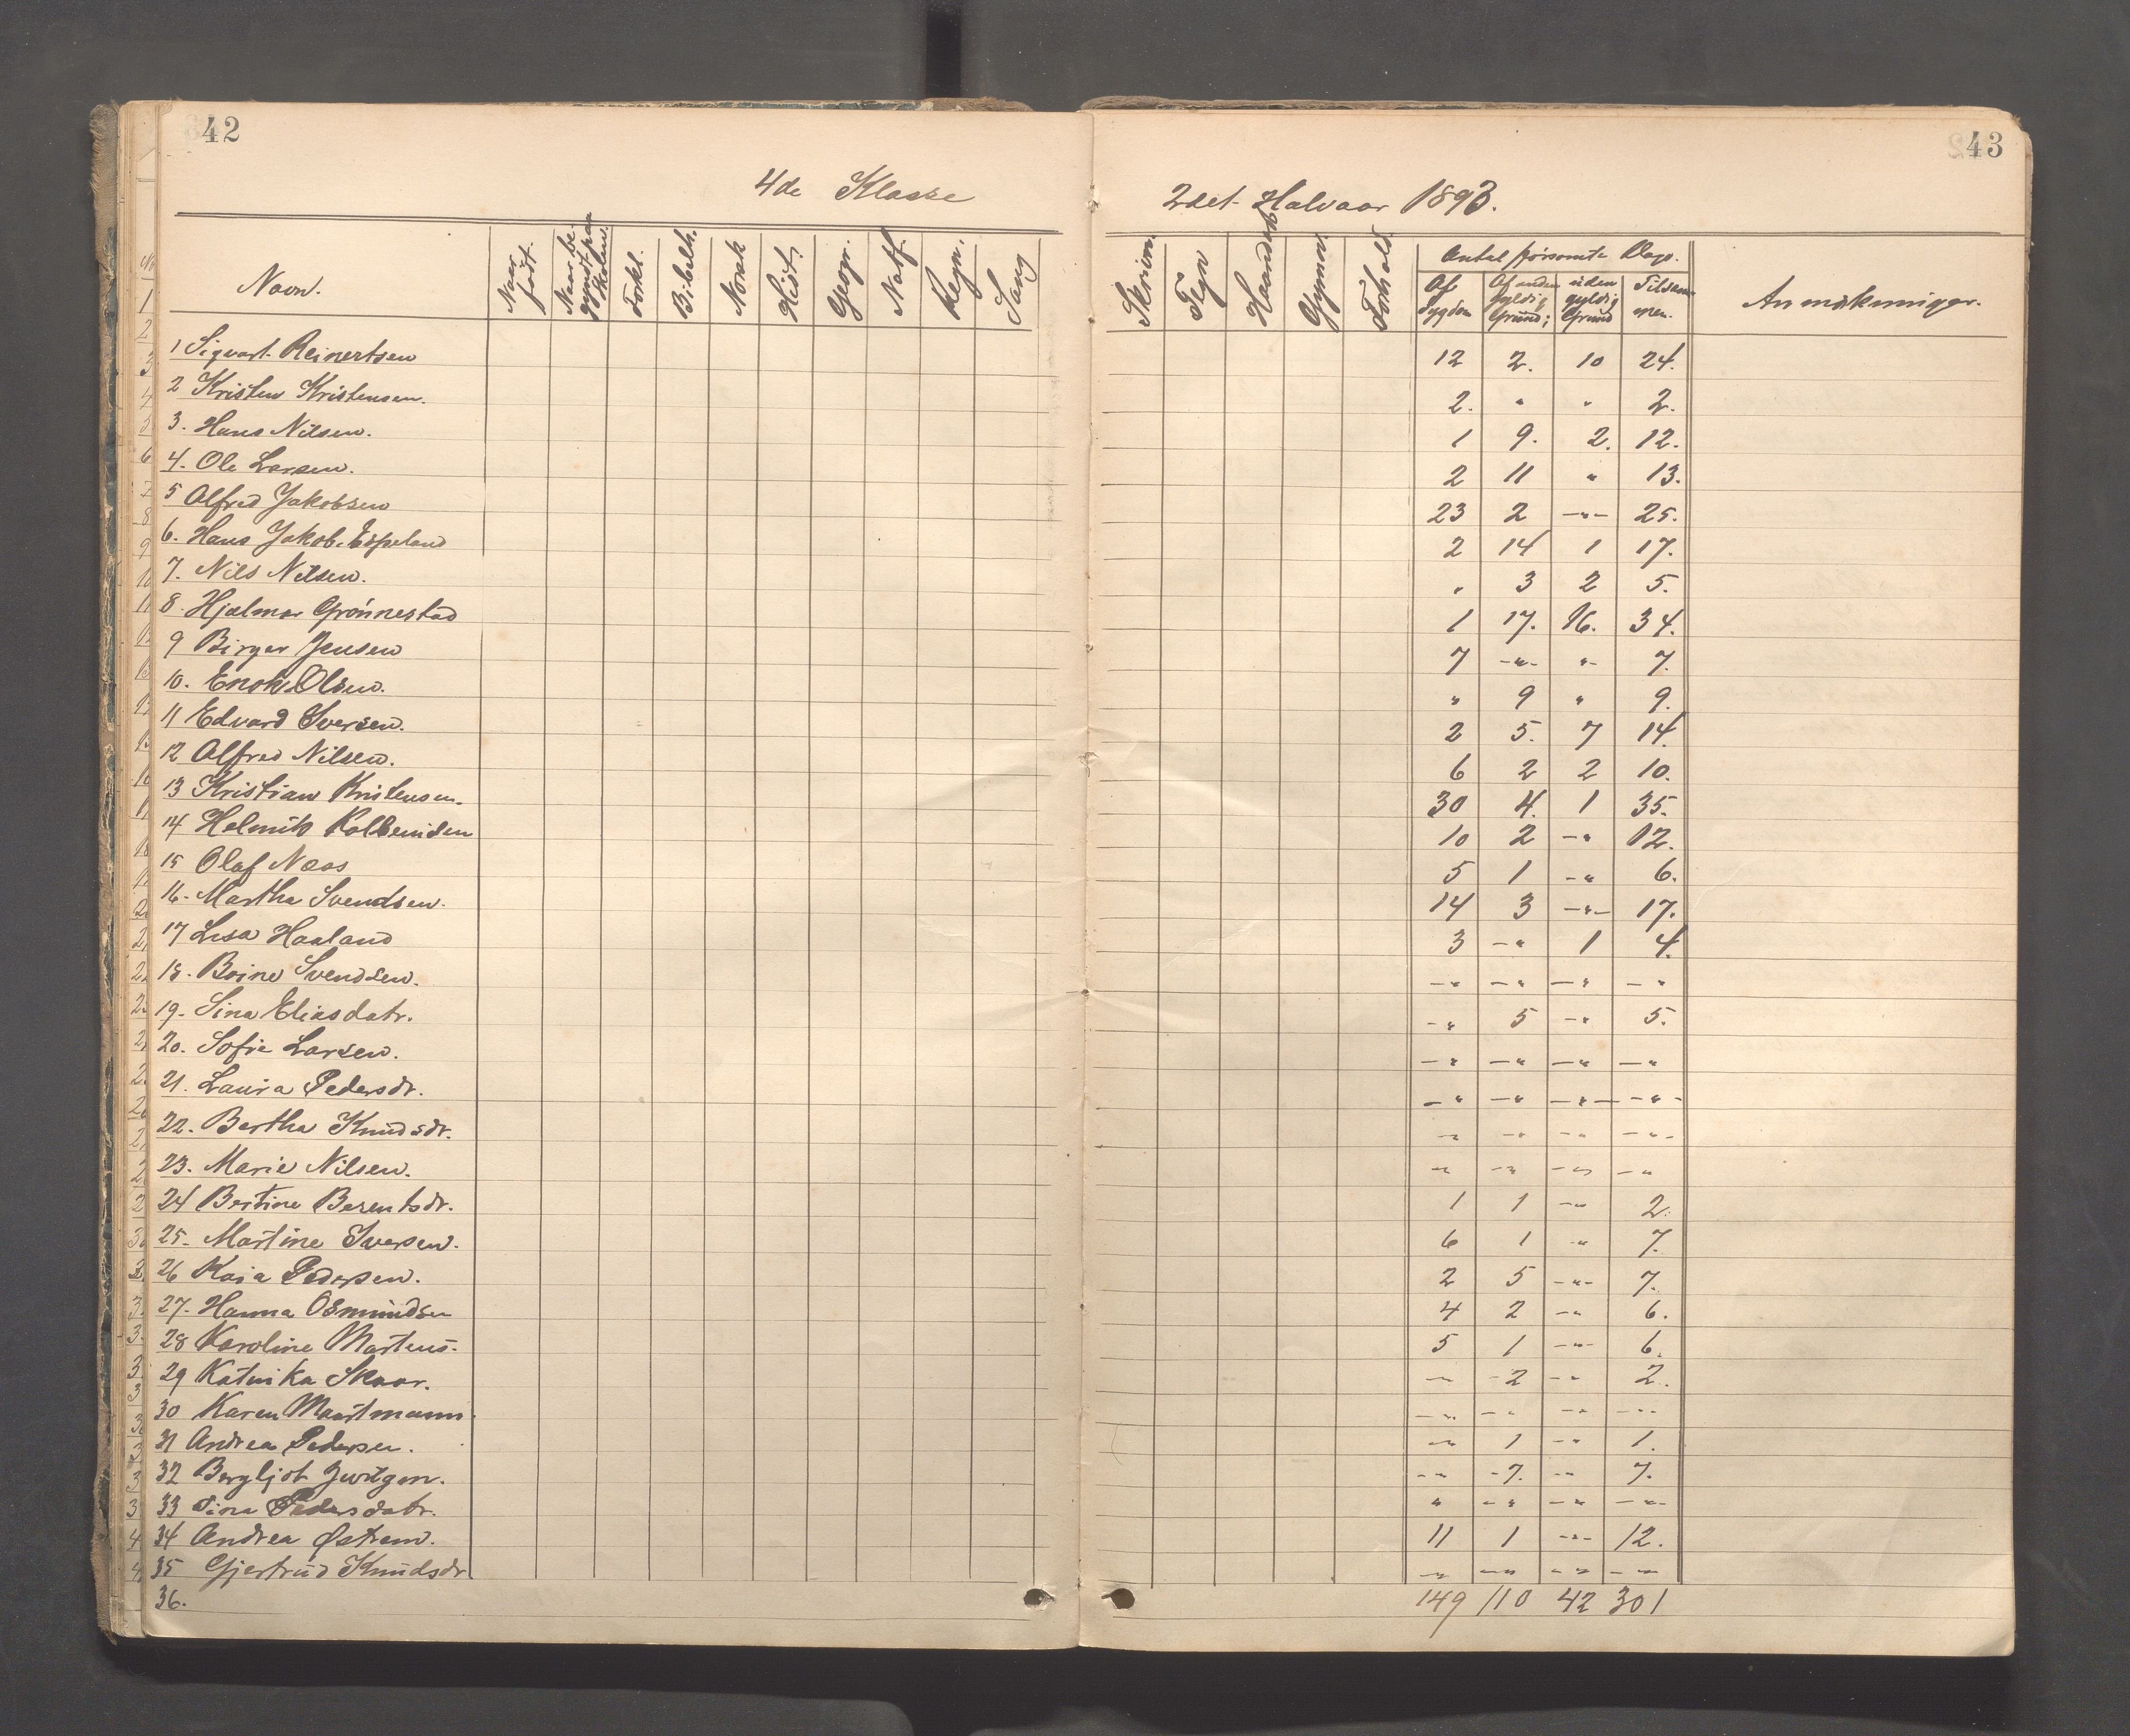 42
43
4de Klasse
2det Halvaar 1893.
Navn. Naar født. Naar begyndt paa Skolen. Forkl. Bibelh. Norsk Hist. Geogr. Natf. Regn. Sang Skrivn. Tegn Haandarb Gymn. Forhold. Antal forsømte Dage. Anmærkninger.
Af Sygdom Af anden gyldig Grund; uden gyldig Grund Tilsammen.
1 Sigvart Reinertsen 12 2. 10 24.
2 Kristen Kristensen. 2. " " 2.
3. Hans Nilsen. 1 9. 2. 12.
4. Ole Larsen. 2 11 " 13.
5 Alfred Jakobsen 23 2 -"- 25.
6. Hans Jakob Espeland 2 14 1 17.
7. Nils Nilsen. " 3 2 5.
8. Hjalmar Grønnestad 1 17. 16. 34.
9 Birger Jensen 7 -"- "- 7.
10. Enok Olsen. " 9 " 9.
11 Edvard Iversen. 2 5. 7 14.
12 Alfred Nilsen. 6 2 2 10.
13 Kristian Kristensen. 30 4. 1 35.
14 Helmik Kolbeinsen 10 2 -" 12.
15 Olaf Næss 5 1 -" 6.
16. Martha Svendsen. 14 3 -"- 17.
17 Lisa Haaland 3 -" 1 4.
18. Boine Svendsen. -" -" -" -"
19. Sina Eliasdatr. -" 5 -" 5.
20. Sofie Larsen. -" -" -" -"
21. Laura Pedersdr. -" -" -"- -"-
22. Bertha Knudsdr. -" -" -" -"-
23. Marie Nilsen. -" -" -" -"
24 Bertine Berentsdr. 1 1 -" 2.
25. Martine Iversen. 6 1 -" 7.
26 Kaia Pedersen. 2 5 -"- 7.
27. Hanna Osmundsen 4 2 -" 6.
28 Karoline Martens. 5 1 -"- 6.
29 Katinka Skaar. -" -2 -" 2.
30 Karen Maartmann. -" -" -" -"
31 Andrea Pedersen. -" 1 -" 1.
32 Bergljot -" -7. -" 7.
33 Tina Pedersdatr. " -" -" -"-
34 Andrea Østrem. 11 1 -"- 12.
35 Gjertrud Knudsdr -" -" -" -"
36. 149 110 42 301